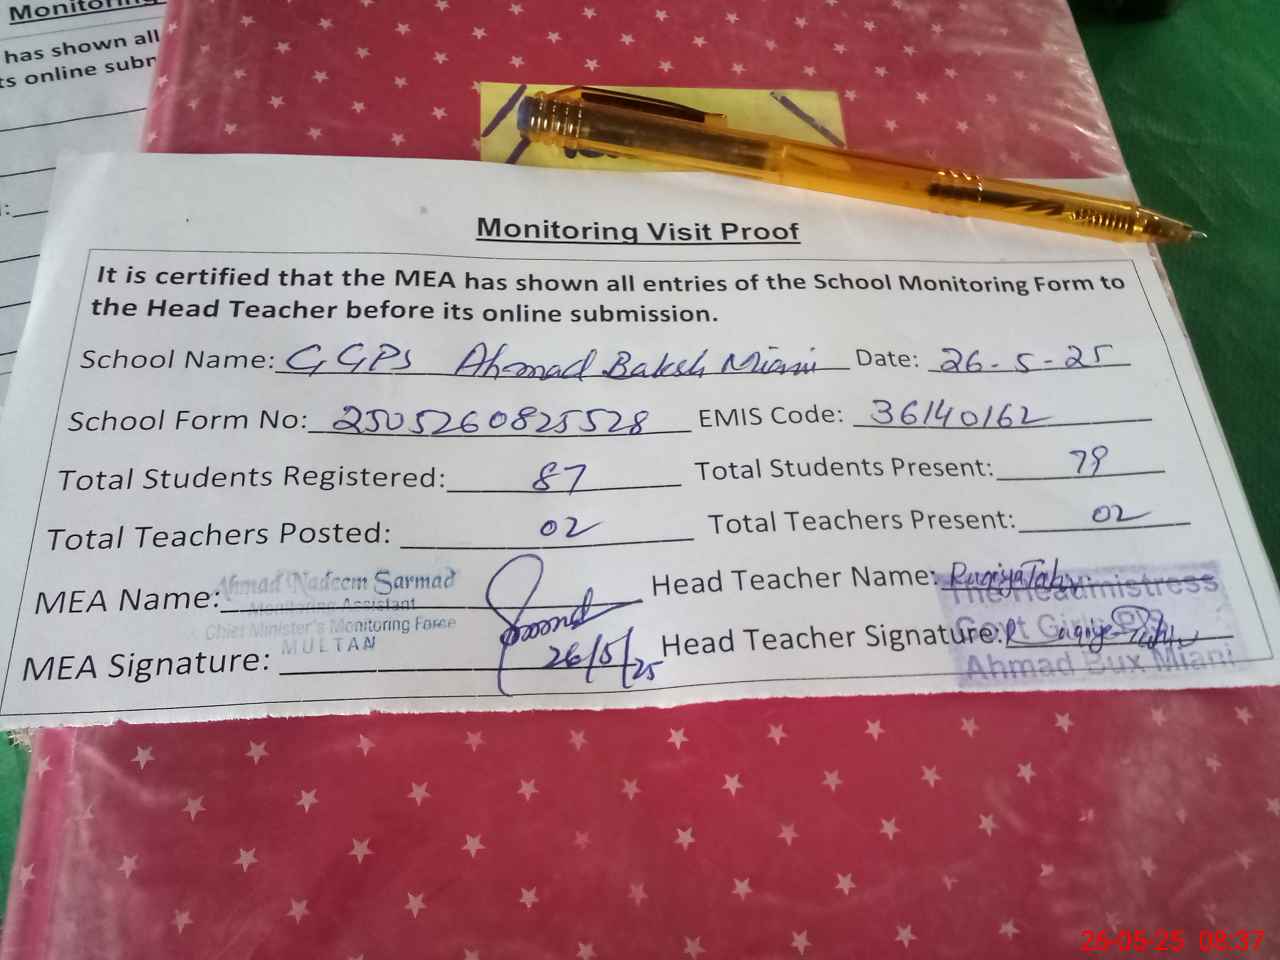 Monitoring
has shown all
ts online subm
Monitoring Visit Proof
It is certified that the MEA has shown all entries of the School Monitoring Form to
the Head Teacher before its online submission.
School Name: GGPS Ahmad Baksh Miani Date: 26-5-25
School Form No: 2505260825528 EMIS Code: 36140162
Total Students Registered: 87 Total Students Present: 79
Total Teachers Posted: 02 Total Teachers Present: 02
MEA Name: Ahmad Nadeem Sarmad Head Teacher Name: Ruqiya
Monitoring Assistant The Headmistress
Chief Minister's Monitoring Force
MULTAN
MEA Signature: 26/5/25 Head Teacher Signature:
Govt Girls
Ahmad Bux Miani
26-05-25 08:37